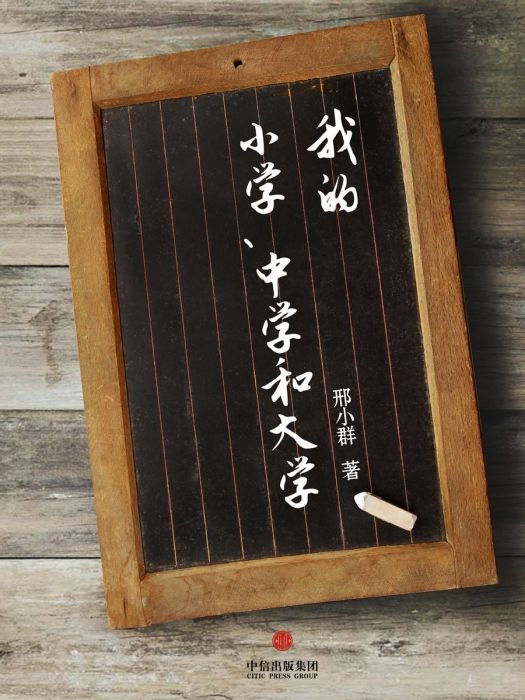 我的
小学、中学和大学
邢小群 著
中信出版集团
CITIC PRESS GROUP